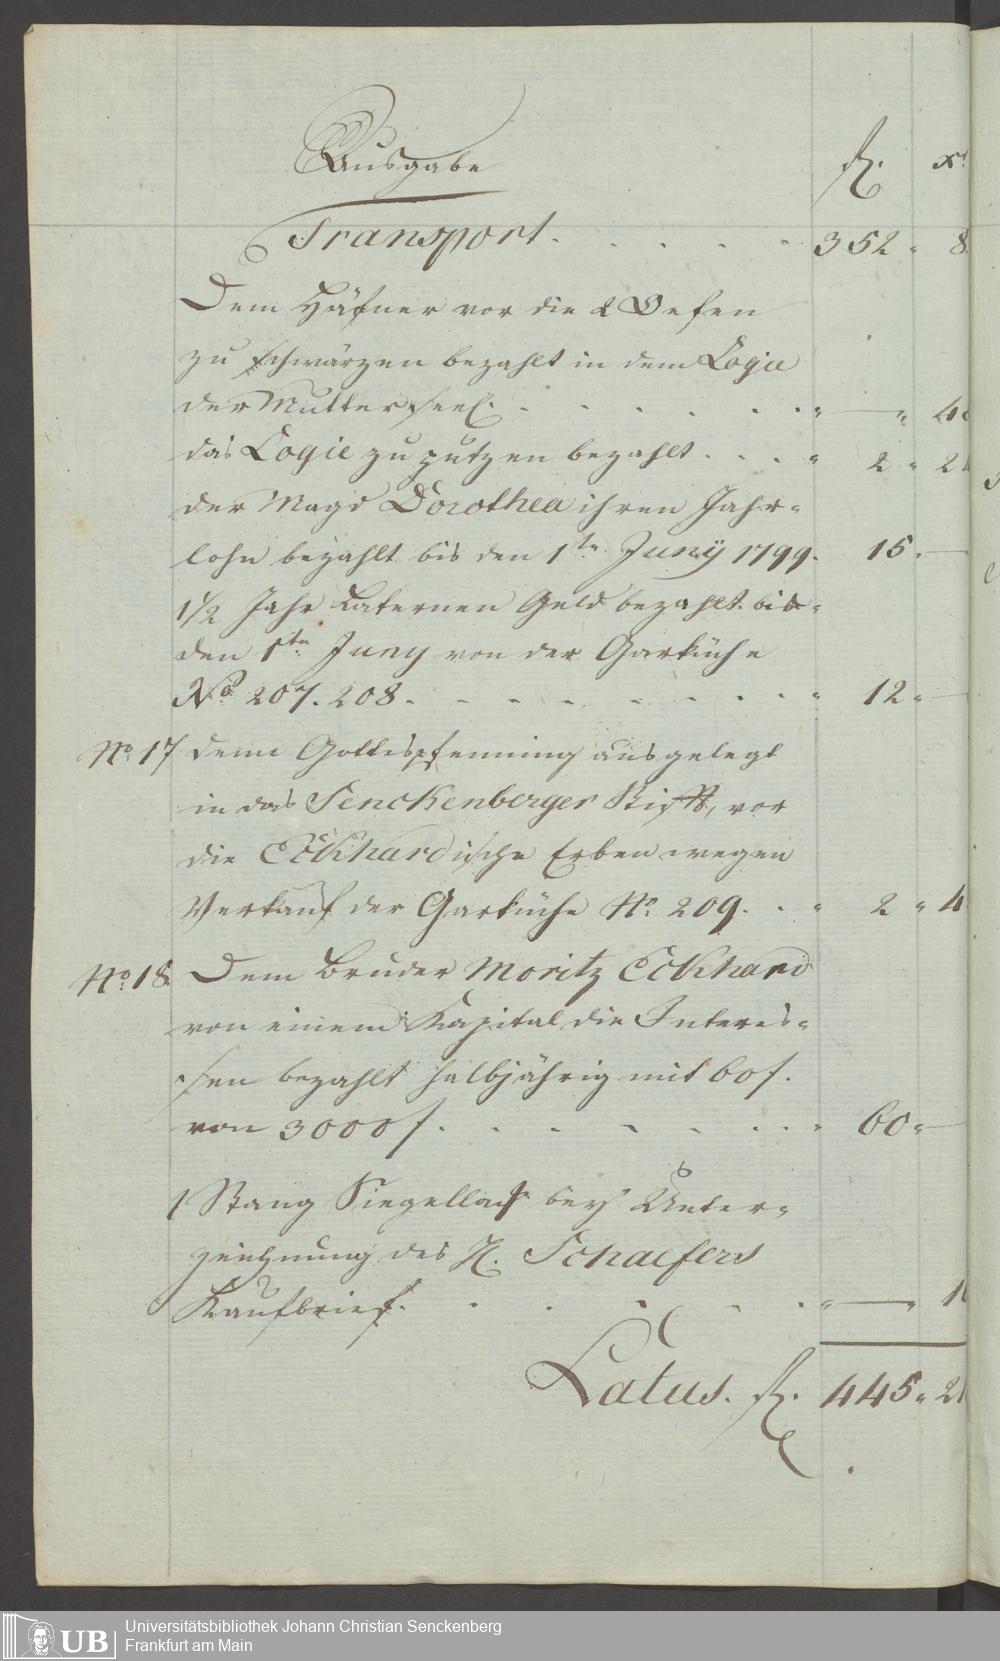 Ausgabe
fl. xr.
Transport. . . . . . 352 " 8.
Dem Häfner vor die 2 Oefen
zu schwärzen bezahlt in dem Logie
der Mutter seel. . . . . . . " — " 4
das Logie zu putzen bezahlt . . . " 2 " 2
der Magd Dorothea ihren Jahr-
lohn bezahlt bis den 1ten Juny 1799. 15 . —
1½ Jahr Laternen Geld bezahlt bis
den 1ten Juny von der Garküche
No. 207. 208 . . . . . . . " 12 " —
No. 17 denn Gottespfenning ausgelegt
in das Senckenberger Stifft, vor
die Eckhardische Erben wegen
Verkauf der Garküche No. 209. . " 2 " 4
No. 18 Dem Bruder Moritz Eckhard
von einem Kapital die Interes-
sen bezahlt halbjährig mit 60 f.
von 3000 f. . . . . . . " 60 " —
1 Stang Siegellack bey Unter-
zeichnung des H. Schaefers
Kaufbrief. . . . . . " — " 1
Latus. fl. 445 " 2
UB
Universitätsbibliothek Johann Christian Senckenberg
Frankfurt am Main